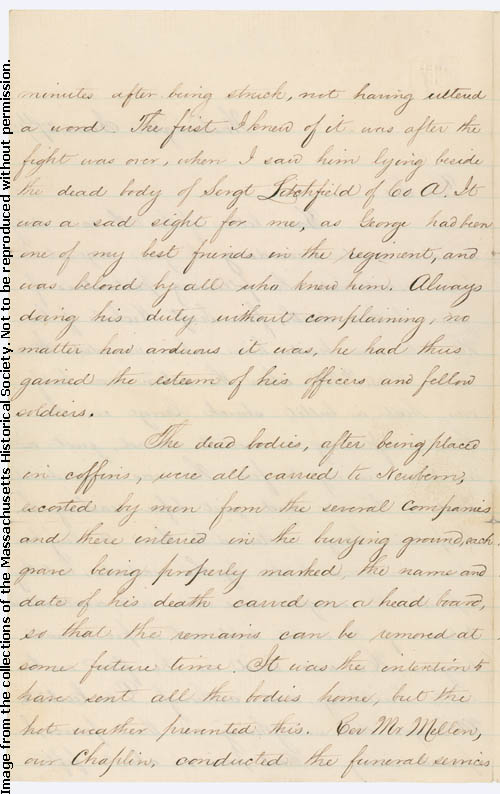 minutes after being struck, not having uttered
a word. The first I knew of it was after the
fight was over, when I saw him lying beside
the dead body of Sergt Litchfield of Co A. It
was a sad sight for me, as George had been
one of my best friends in the regiment, and
was beloved by all who knew him. Always
doing his duty without complaining, no
matter how arduous it was, he had thus
gained the esteem of his officers and fellow
soldiers.
The dead bodies, after being placed
in coffins, were all carried to Newbern,
escorted by men from the several companies
and there interred in the burying ground, each
grave being properly marked, the name and
date of his death carved on a head board,
so that the remains can be removed at
some future time. It was the intention to
have sent all the bodies home, but the
hot weather prevented this. Mr Mellen,
our Chaplin, conducted the funeral services
Image from the collections of the Massachusetts Historical Society. Not to be reproduced without permission.